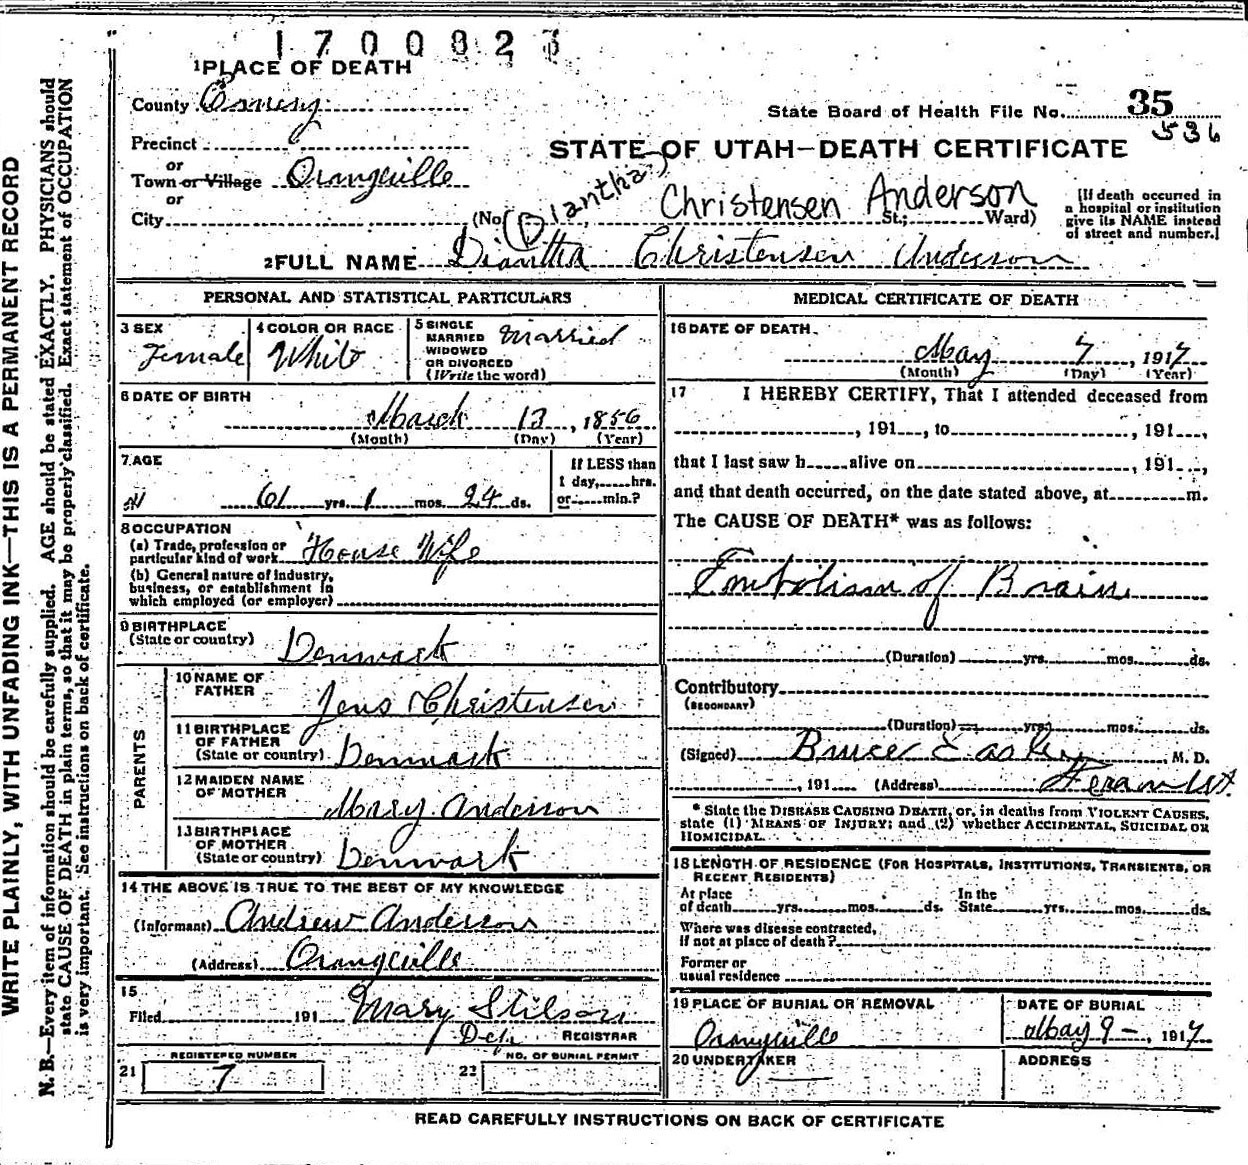 1700823
1 PLACE OF DEATH
County Emery
State Board of Health File No. 35
536
Precinct
STATE OF UTAH—DEATH CERTIFICATE
or
Town or Village Orangeville
or
City (No. (Diantha) Christensen Anderson St.; Ward)
[If death occurred in a hospital or institution give its NAME instead of street and number.]
2 FULL NAME Diantha Christensen Anderson
PERSONAL AND STATISTICAL PARTICULARS
3 SEX Female
4 COLOR OR RACE White
5 SINGLE MARRIED WIDOWED OR DIVORCED (Write the word) Married
6 DATE OF BIRTH
March 13, 1856
(Month) (Day) (Year)
7 AGE
61 yrs. 1 mos. 24 ds.
If LESS than 1 day, hrs. or min.?
8 OCCUPATION
(a) Trade, profession or particular kind of work House Wife
(b) General nature of industry, business, or establishment in which employed (or employer)
9 BIRTHPLACE
(State or country) Denmark
PARENTS
10 NAME OF FATHER Jens Christensen
11 BIRTHPLACE OF FATHER (State or country) Denmark
12 MAIDEN NAME OF MOTHER Mary Anderson
13 BIRTHPLACE OF MOTHER (State or country) Denmark
14 THE ABOVE IS TRUE TO THE BEST OF MY KNOWLEDGE
(Informant) Andrew Anderson
(Address) Orangeville
15
Filed 191 Mary Stilson
Dep. REGISTRAR
21 REGISTERED NUMBER 7
22 NO. OF BURIAL PERMIT
MEDICAL CERTIFICATE OF DEATH
16 DATE OF DEATH
May 7, 1917
(Month) (Day) (Year)
17 I HEREBY CERTIFY, That I attended deceased from
, 191 , to , 191 ,
that I last saw h alive on , 191 ,
and that death occurred, on the date stated above, at m.
The CAUSE OF DEATH* was as follows:
Embolism of Brain
(Duration) yrs. mos. ds.
Contributory
(SECONDARY)
(Duration) yrs. mos. ds.
(Signed) Bruce Easley, M. D.
, 191 (Address) Feron Ut.
* State the DISEASE CAUSING DEATH, or, in deaths from VIOLENT CAUSES,
state (1) MEANS OF INJURY; and (2) whether ACCIDENTAL, SUICIDAL OR
HOMICIDAL.
18 LENGTH OF RESIDENCE (FOR HOSPITALS, INSTITUTIONS, TRANSIENTS, OR
RECENT RESIDENTS)
At place of death yrs. mos. ds. In the State yrs. mos. ds.
Where was disease contracted,
if not at place of death?
Former or
usual residence
19 PLACE OF BURIAL OR REMOVAL
Orangeville
DATE OF BURIAL
May 9 – , 1917
20 UNDERTAKER
ADDRESS
READ CAREFULLY INSTRUCTIONS ON BACK OF CERTIFICATE
WRITE PLAINLY, WITH UNFADING INK—THIS IS A PERMANENT RECORD
N. B.—Every item of information should be carefully supplied. AGE should be stated EXACTLY. PHYSICIANS should
state CAUSE OF DEATH in plain terms, so that it may be properly classified. Exact statement of OCCUPATION
is very important. See instructions on back of certificate.